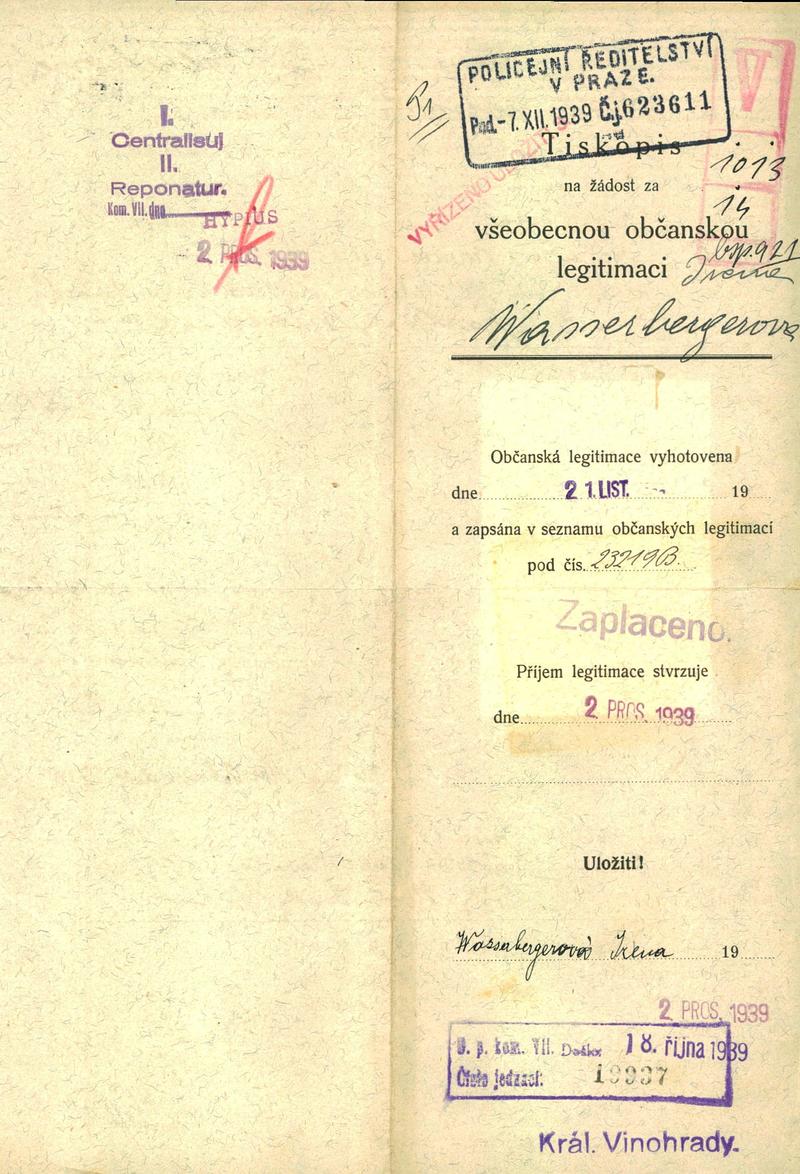 I.
Centralisuj
II.
Reponatur.
Kom. VII. dne
HYPIUS
2 PROS. 1939
POLICEJNÍ ŘEDITELSTVÍ
V PRAZE.
Pod.-7.XII.1939 Čj.623611
VYŘÍZENO ULOŽIT
V
Tiskopis
1013
na žádost za
14
všeobecnou občanskou
legitimaci
Irena
Wasserbergerova
Občanská legitimace vyhotovena
dne 21. LIST. 19
a zapsána v seznamu občanských legitimací
pod čís. 232190B.
Zaplaceno.
Příjem legitimace stvrzuje
dne 2 PROS. 1939
Uložiti!
Wasserbergerová Irena 19
2 PROS. 1939
kom. VII. Došlo: 18. října 1939
Číslo jednací: 19937
Král. Vinohrady.